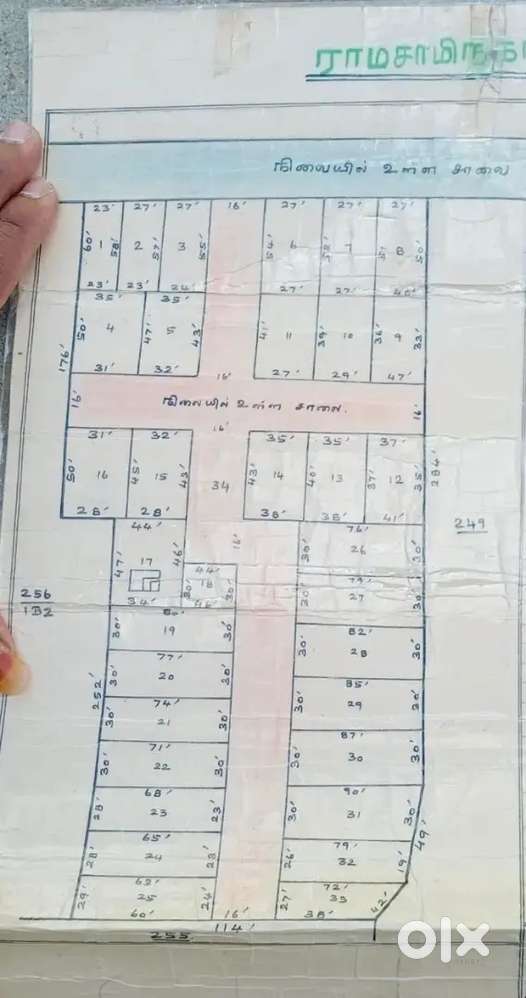 ராமசாமிநகர்
நிலையில் உள்ள சாலை
23' 27' 27' 16' 27' 27' 27'
60' 1 58' 2 57' 3 55' 54' 6 52' 7 51' 8 50'
23' 23' 24' 27' 27' 40'
35' 35'
50' 4 47' 5 43' 41' 11 39' 10 36' 9 33'
176' 31' 32' 16' 27' 29' 47'
16' நிலையில் உள்ள சாலை. 16'
31' 32' 16' 35' 35' 37'
50' 16 45' 15 43' 34 43' 14 40' 13 37' 12 35' 284'
28' 28' 38' 38' 41'
44' 16' 76'
47' 17 46' 30' 26 30' 249
44'
30' 18 30' 79'
256 34' 46' 30' 27 30'
1B2 80'
30' 19 30' 82'
30' 28 30'
77'
252' 30' 20 30' 85'
30' 29 30'
74'
30' 21 30' 87'
30' 30 30'
71'
30' 22 30' 90'
30' 31 30' 49'
68'
28' 23 23'
65' 79'
28' 24 23' 26' 32 19'
62' 72'
29' 25 24' 27' 33 42'
60' 16' 38'
114'
255
olx